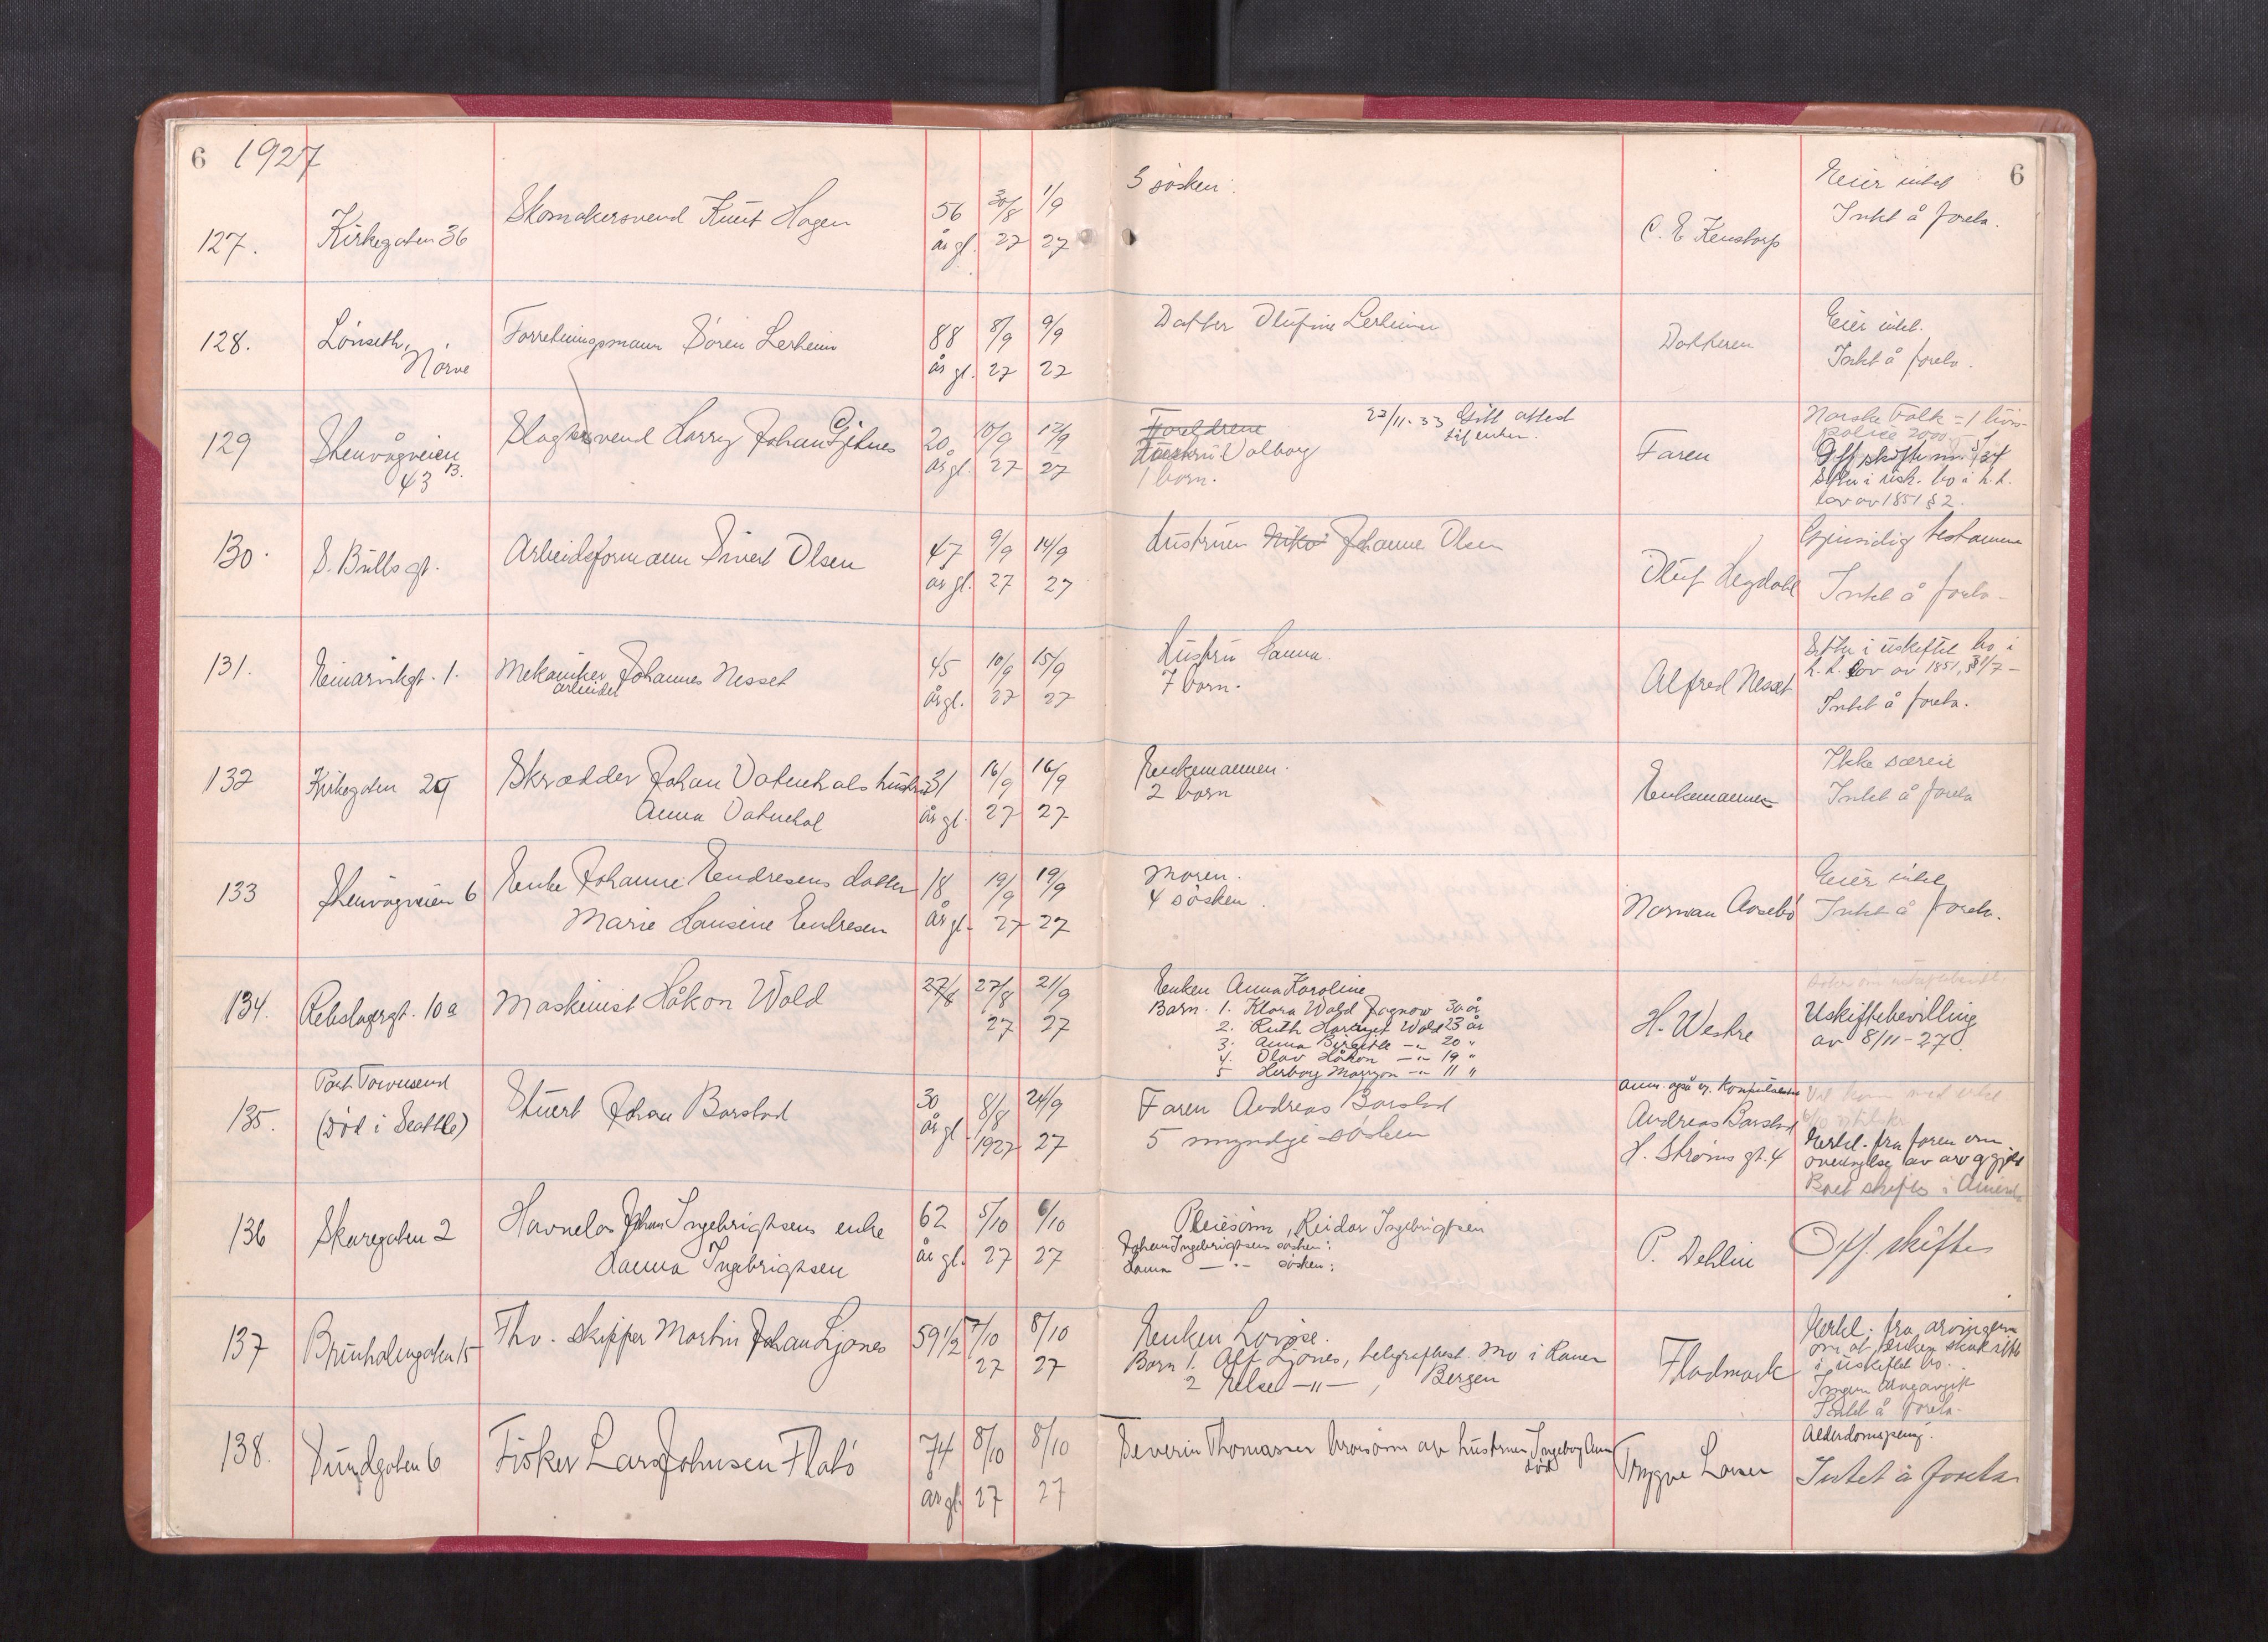 6 1927
6
127. Kirkegaten 36 Skomakersvend Knut Hagen 56 år gl. 30/8 27 1/9 27
3 søsken.
C. E.
Eier intet
Intet å foreta.
128. Lönseth, Nörve Forretningsmann Sören Lerheim 88 år gl. 8/9 27 9/9 27
Datter Olufine Lerheim
Datteren
Eier intet.
Intet å foreta.
129 Stenvågveien 43 B. Slaktersvend Harry Johan Gjetnes 20 år gl. 10/9 27 12/9 27
Foreldrene 23/11-33 Gitt attest
til enken.
Hustru Valborg
1 barn.
Faren
Norske Folk = 1 livs-
police 2000
Off skifte nr.
Sitter i usk. bo i h. t.
lov av 1851 § 2.
130. S. Bulls gt. Arbeidsformann Sivert Olsen 47 år gl. 9/9 27 14/9 27
Hustruen Johanne Olsen
Oluf Hegdahl
Gjensidig testamente
Intet å foreta
131. Keiser Mekaniker Johannes Nesset 45 år gl. 10/9 27 15/9 27
arbeider
Hustru Hanna.
7 barn.
Alfred Nesset
Sitter i uskiftet bo i
h. t. lov av 1851, §1/7 -
Intet å foreta.
132 Kirkegaten 29 Skrædder Johan Vatnehals hustru 31 år gl. 16/9 27 16/9 27
Anna Vatnehal
Enkemannen.
2 barn
Enkemannen
Ikke særeie
Intet å foreta
133 Stenvågveien 6 Enke Johanne Endresens datter 18 år gl. 19/9 27 19/9 27
Marie Hansine Endresen
Moren.
4 søsken.
Norman Aarsebö
Eier intet
Intet å foreta.
134. Rebslagergt. 10a Maskinist Håkon Wold 27/8 27/8 27 21/9 27
Enken Anna Karoline
Barn. 1. Klara Wold 30 år
2. Ruth Margit Wold 23 år
3. Anna Birgitte -"- 20 "
4. Olav Håkon -"- 19 "
5 Herborg Marijon -"- 11 "
H. Westre
Uskiftebevilling
av 8/11-27.
135. Port Townsend
(Död i Seattle) Stuert Johan Barstad 30 år gl. 8/8 1927 24/9 27
Faren Andreas Barstad
5 myndige søsken
anm. også
Andreas Barstad
H. Ströms gt. 4
Erkl. fra faren om
overtagelse av arv og gjeld
Boet skiftes i Amerika
136 Skaregaten 2 Havnelos Johan Ingebrigtsens enke 62 år gl. 5/10 27 6/10 27
Hanna Ingebrigtsen
Pleiesönn, Reidar Ingebrigtsen
Johan Ingebrigtsens søsken:
Hanna -"- søsken:
P. Dehlin
Off. skifte
137 Brunholmgaten 15 Fhv. skipper Martin Johan Ljones 59 1/2 7/10 27 8/10 27
Enken Lovise.
Barn 1. Alf Ljones, telegrafbest. Mo i Ranen
2 Else -"-, Bergen
Fladmark
Erkl. fra arvingene
om at enken skal sitte
i uskiftet bo.
Ingen arveavgift
Intet å foreta.
138. Sundgaten 6 Fisker Lars Johnsen Flatö 74 år gl. 8/10 27 8/10 27
Severin Thomassen brorsönn av hustruen Ingeborg Anna
död
Trygve Larsen
Alderdomspens.
Intet å foreta